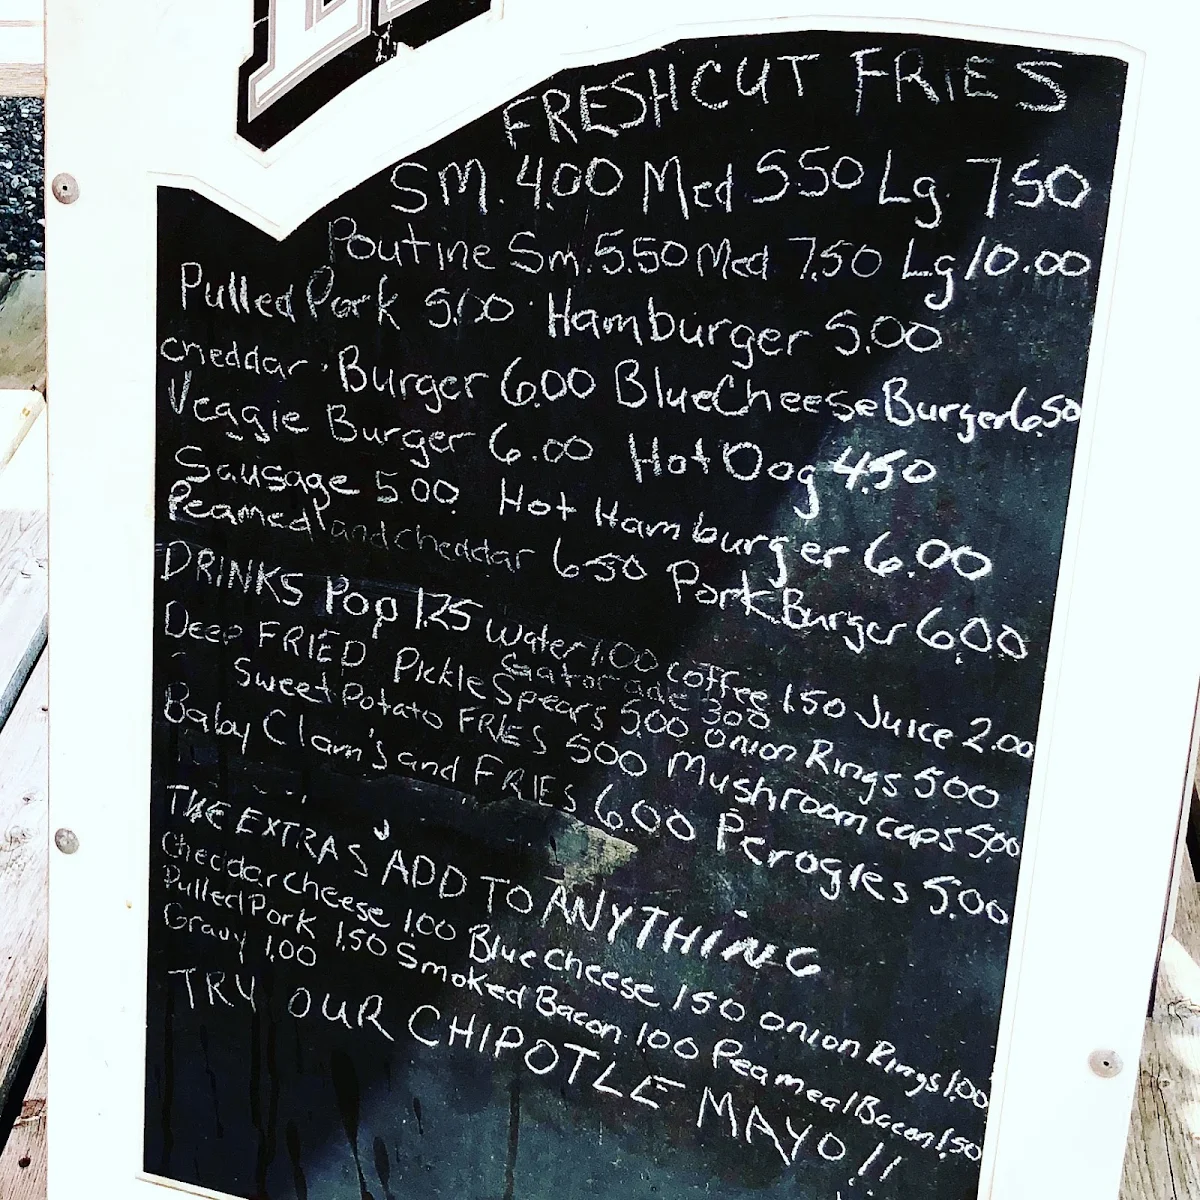 FRESHCUT FRIES
Sm. 4.00 Med 5.50 Lg. 7.50
Poutine Sm. 5.50 Med 7.50 Lg 10.00
Pulled Pork 5.00 Hamburger 5.00
cheddar Burger 6.00 BlueCheese Burger 6.50
Veggie Burger 6.00 Hot Dog 4.50
Sausage 5.00 Hot Hamburger 6.00
Peameal and cheddar 6.50 Pork Burger 6.00
DRINKS Pop 1.25 Water 1.00 coffee 1.50 Juice 2.00
Gatorade 3.00
Deep FRIED Pickle Spears 5.00 Onion Rings 5.00
Sweet Potato FRIES 5.00 Mushroom caps 5.00
Baby Clam's and FRIES 6.00 Perogies 5.00
THE EXTRAS ADD TO ANYTHING
Cheddar cheese 1.00 Blue cheese 1.50 onion Rings 1.00
Pulled Pork 1.50 Smoked Bacon 1.00 Peameal Bacon 1.50
Gravy 1.00
TRY OUR CHIPOTLE MAYO!!